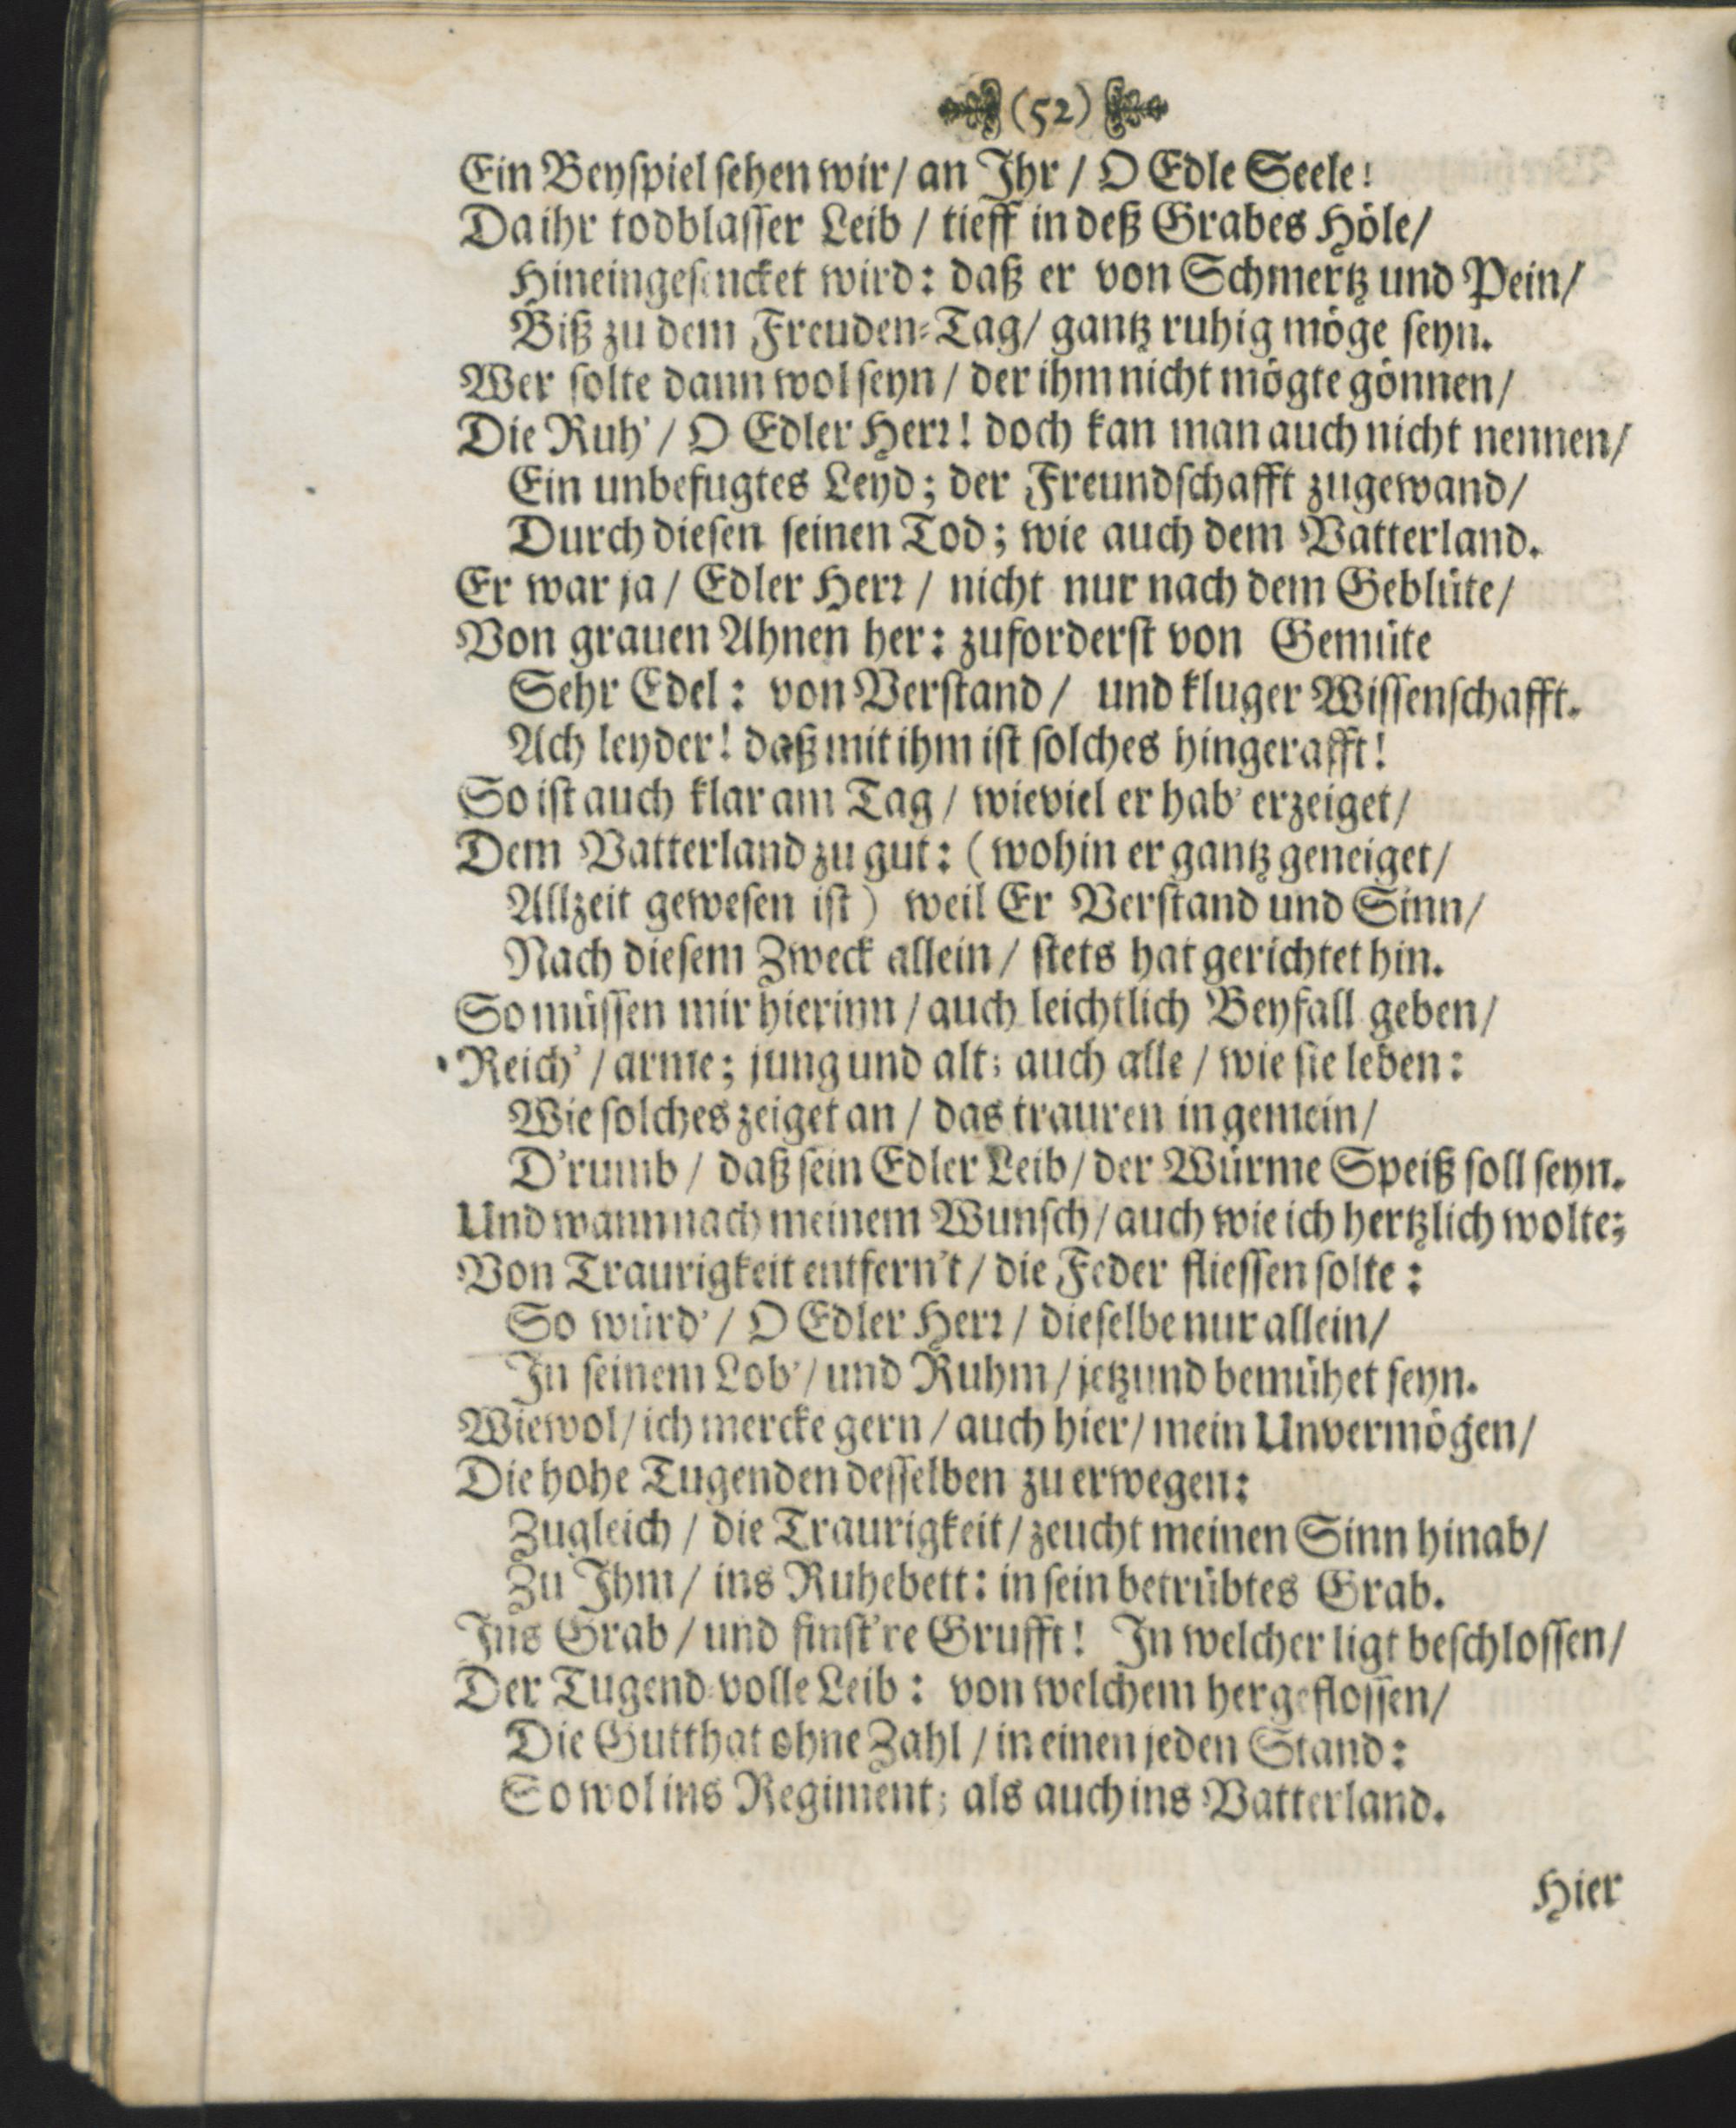 (52)
Ein Beyspiel sehen wir/ an Ihr / O Edle Seele!
Da ihr todblasser Leib / tieff in deß Grabes Höle/
Hineingesencket wird: daß er von Schmertz und Pein/
Biß zu dem Freuden-Tag/ gantz ruhig möge seyn.
Wer solte dann wol seyn / der ihm nicht mögte gönnen/
Die Ruh' / O Edler Herr! doch kan man auch nicht nennen/
Ein unbefugtes Leyd; der Freundschafft zugewand/
Durch diesen seinen Tod; wie auch dem Vatterland.
Er war ja / Edler Herr / nicht nur nach dem Geblüte/
Von grauen Ahnen her: zuforderst von Gemüte
Sehr Edel: von Verstand / und kluger Wissenschafft.
Ach leyder! daß mit ihm ist solches hingerafft!
So ist auch klar am Tag / wieviel er hab' erzeiget/
Dem Vatterland zu gut: (wohin er gantz geneiget/
Allzeit gewesen ist) weil Er Verstand und Sinn/
Nach diesem Zweck allein / stets hat gerichtet hin.
So müssen mir hierinn / auch leichtlich Beyfall geben/
Reich' / arme; jung und alt; auch alle / wie sie leben:
Wie solches zeiget an / das trauren in gemein/
D'rumb / daß sein Edler Leib / der Würme Speiß soll seyn.
Und wann nach meinem Wunsch / auch wie ich hertzlich wolte;
Von Traurigkeit entfern't / die Feder fliessen solte:
So würd' / O Edler Herr / dieselbe nur allein/
In seinem Lob' / und Ruhm / jetzund bemühet seyn.
Wiewol / ich mercke gern / auch hier / mein Unvermögen/
Die hohe Tugenden desselben zu erwegen:
Zugleich / die Traurigkeit / zeucht meinen Sinn hinab/
Zu Ihm / ins Ruhebett: in sein betrübtes Grab.
Ins Grab / und finst're Grufft! In welcher ligt beschlossen/
Der Tugend-volle Leib: von welchem hergeflossen/
Die Gutthat ohne Zahl / in einen jeden Stand:
So wol ins Regiment; als auch ins Vatterland.
Hier